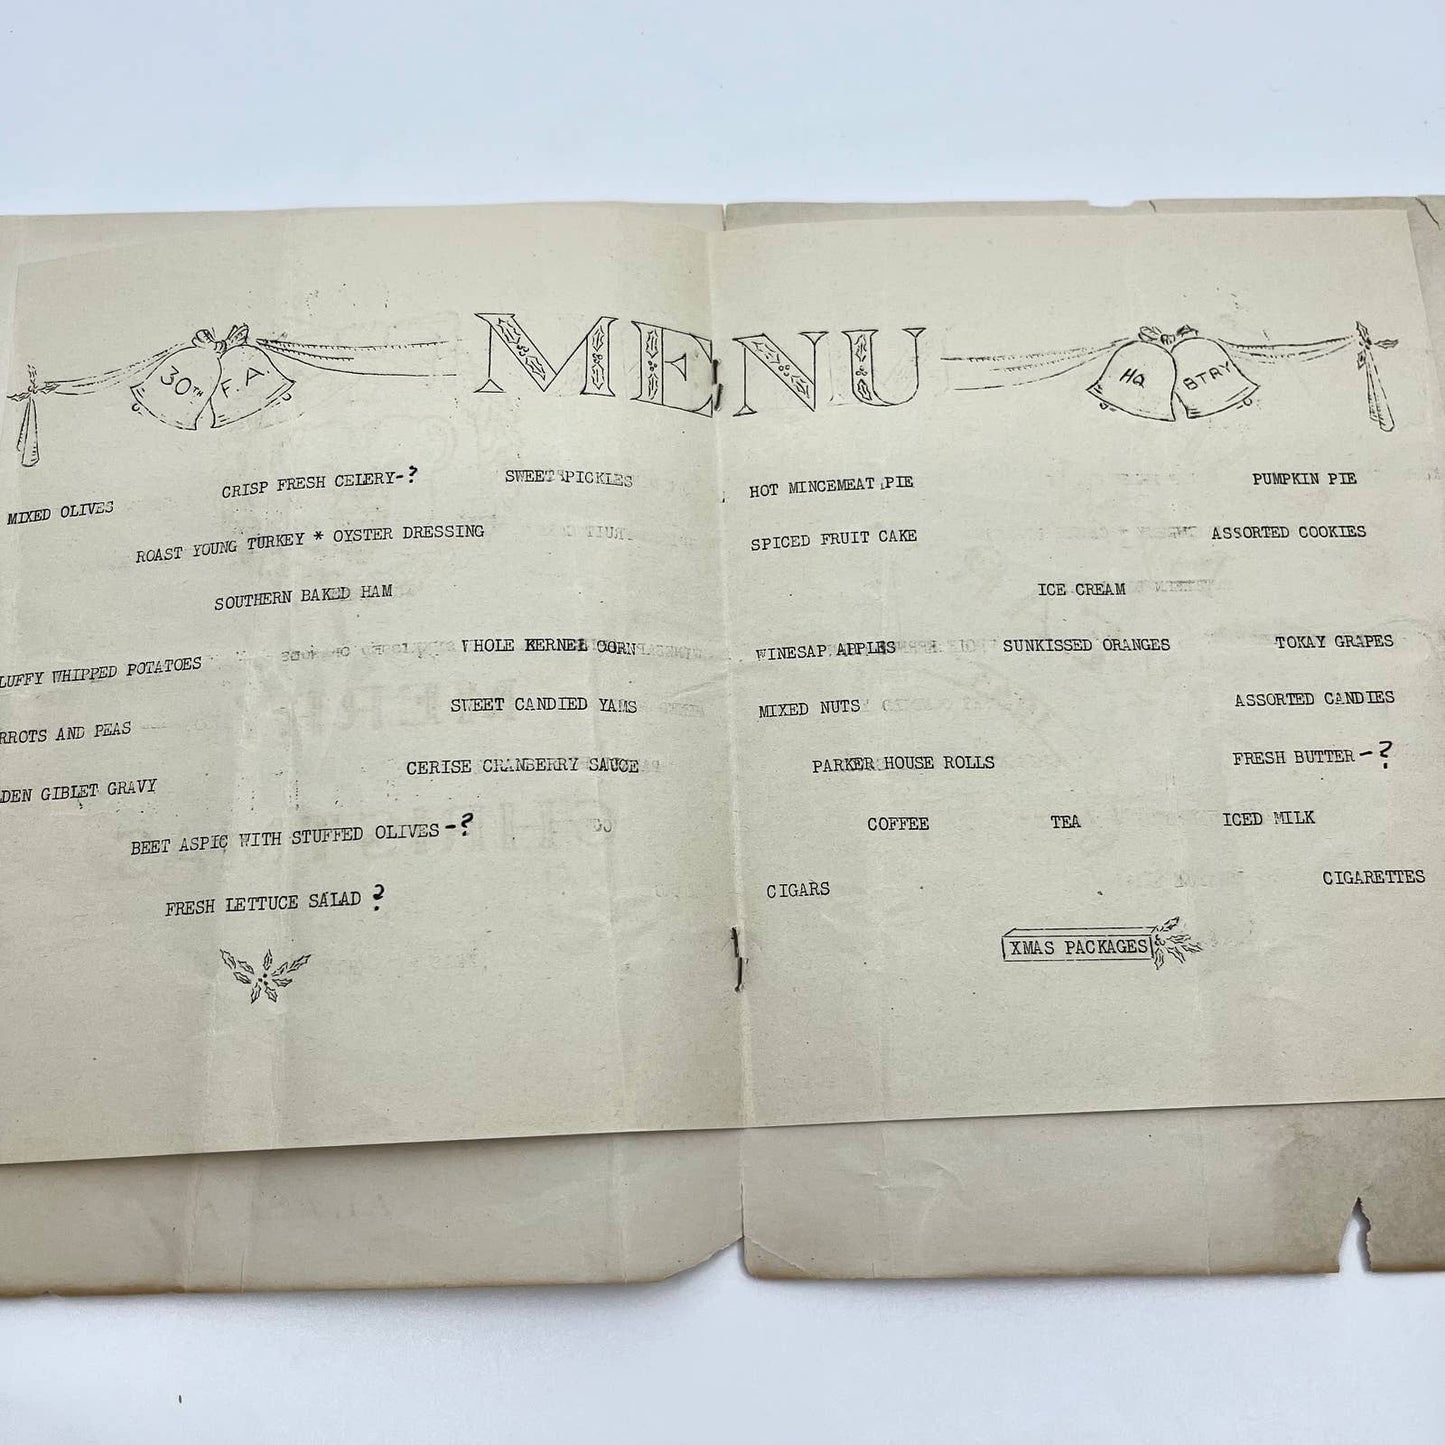 MENU
30TH F.A.
HQ BTRY
CRISP FRESH CELERY-? SWEET PICKLES
MIXED OLIVES
ROAST YOUNG TURKEY * OYSTER DRESSING
SOUTHERN BAKED HAM
WHOLE KERNEL CORN
LUFFY WHIPPED POTATOES
SWEET CANDIED YAMS
RROTS AND PEAS
CERISE CRANBERRY SAUCE
DEN GIBLET GRAVY
BEET ASPIC WITH STUFFED OLIVES-?
FRESH LETTUCE SALAD ?
HOT MINCEMEAT PIE PUMPKIN PIE
SPICED FRUIT CAKE ASSORTED COOKIES
ICE CREAM
WINESAP APPLES SUNKISSED ORANGES TOKAY GRAPES
MIXED NUTS ASSORTED CANDIES
PARKER HOUSE ROLLS FRESH BUTTER-?
COFFEE TEA ICED MILK
CIGARS CIGARETTES
XMAS PACKAGES